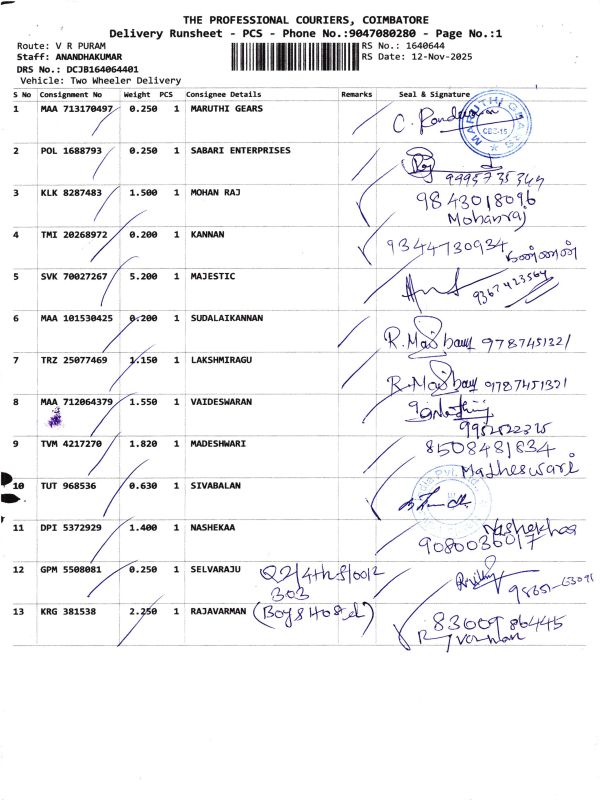 THE PROFESSIONAL COURIERS, COIMBATORE
Delivery Runsheet - PCS - Phone No.:9047080280 - Page No.:1
Route: V R PURAM RS No.: 1640644
Staff: ANANDHAKUMAR RS Date: 12-Nov-2025
DRS No.: DCJB164064401
Vehicle: Two Wheeler Delivery
S No Consignment No Weight PCS Consignee Details Remarks Seal & Signature
1 MAA 713170497 0.250 1 MARUTHI GEARS
MARUTHI GEARS CBE-15
2 POL 1688793 0.250 1 SABARI ENTERPRISES
3 KLK 8287483 1.500 1 MOHAN RAJ 9843018096
Mohanraj
4 TMI 20268972 0.200 1 KANNAN 9344730934
கண்ணன்
5 SVK 70027267 5.200 1 MAJESTIC 9367423564
6 MAA 101530425 0.200 1 SUDALAIKANNAN 9787451321
7 TRZ 25077469 1.150 1 LAKSHMIRAGU 9787451321
8 MAA 712064379 1.550 1 VAIDESWARAN
9 TVM 4217270 1.820 1 MADESHWARI 8508481834
Madheswari
10 TUT 968536 0.630 1 SIVABALAN
11 DPI 5372929 1.400 1 NASHEKAA Nashekhaa
9080036017
12 GPM 5508081 0.250 1 SELVARAJU
303
13 KRG 381538 2.250 1 RAJAVARMAN (Boys Hostel) 8300986445